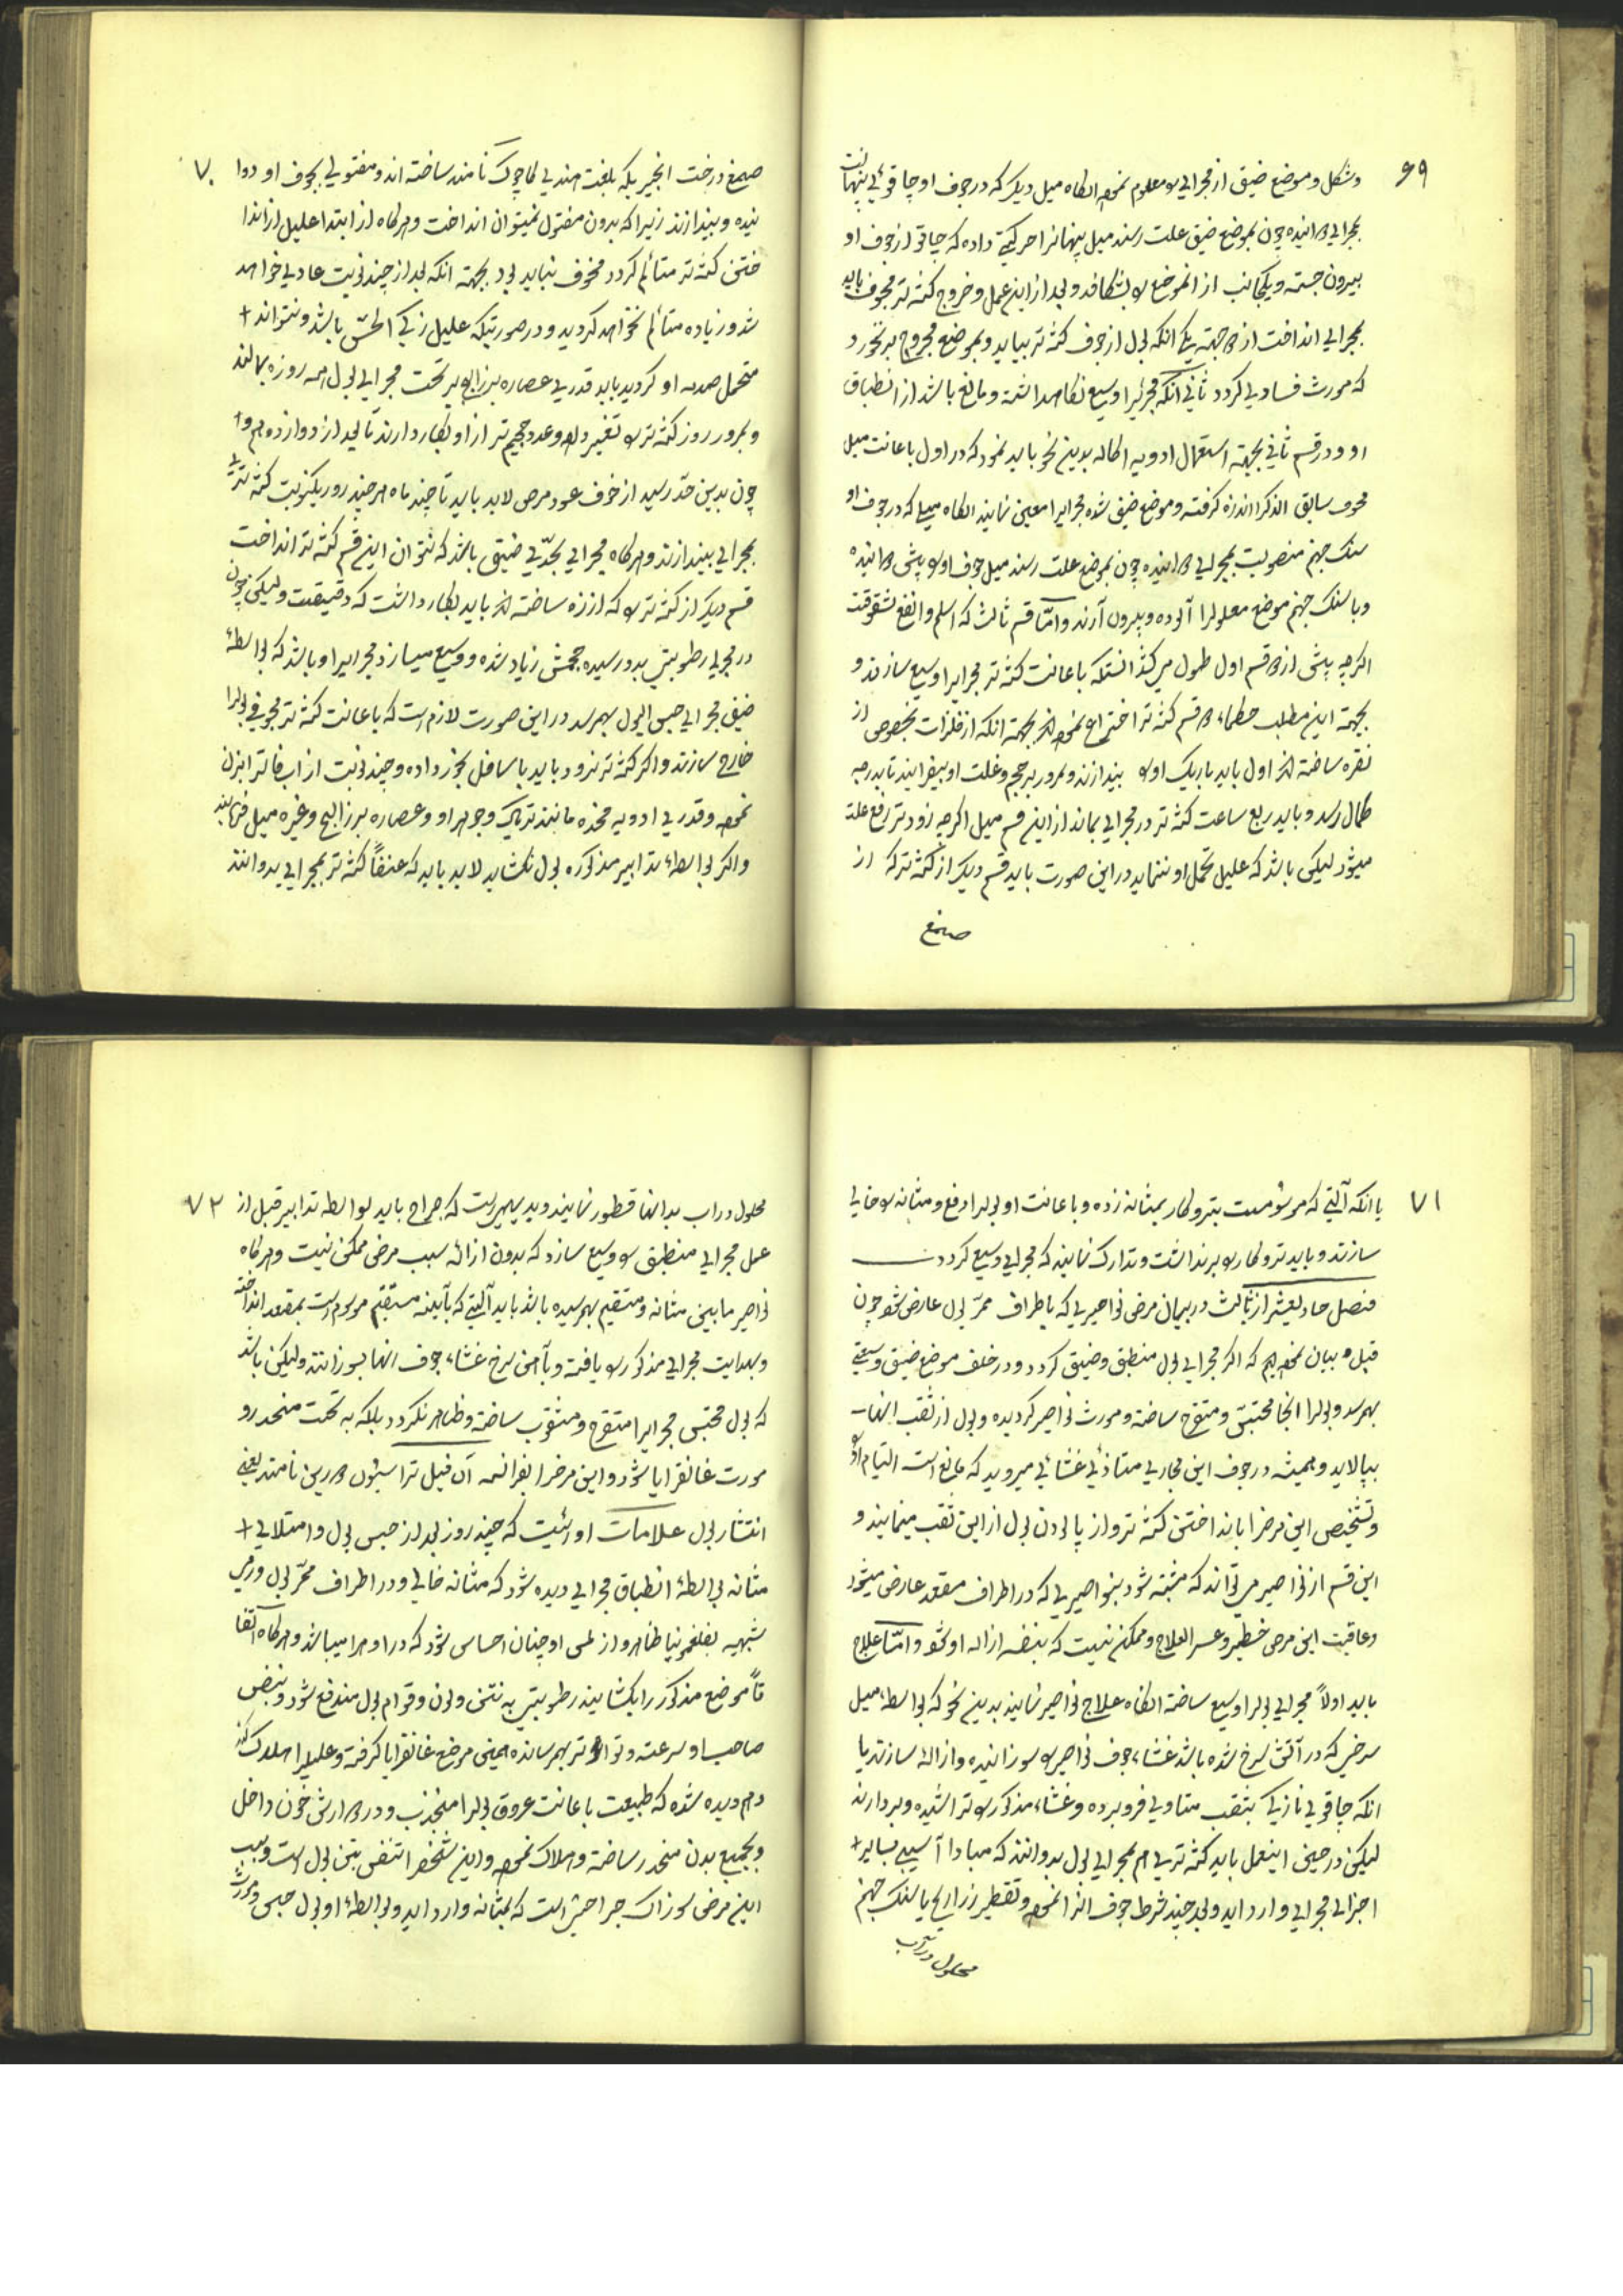 ۶۹
وشکل و موضع ضیق از مجرای را معلوم نموده انگاه میل دیگر که در جوف او چاقوئی پنهانست
بمجرای درانیده چون بموضع ضیق علت رسند میل پنهانرا حرکتی داده که چاقو از جوف او
بیرون جسته و یکجانب از انموضع را بشکافد و بعد از این عمل و خروج کثه تر مجوف باید
بمجرای انداخت از دو جهته یکی انکه بول از جوف کثه تر بیاید و بموضع مجروح بر نخورد
که مورث فسادی کردد ثانی انکه مجرئیرا وسیع نکاهداشته و مانع باشد از انطباق
او و در قسم ثانی بجهته استعمال ادویه اکاله بدین نحو باید نمود که در اول باعانت میل
مجوف سابق الذکر اندازه کرفته و موضع ضیق شده مجرایرا معین نمایند انگاه میلی که در جوف او
سنک جهنم منصوبست بمجرای درانیده چون بموضع علت رسند میل جوف او را پیش درانیده
و با سنک جهنم موضع معلولرا آلوده و بیرون آرند و امّا قسم ثالث که اسلم و انفع شقوقت
اکرچه پیش از دو قسم اول طول میکشد انستکه باعانت کثه تر مجرایرا وسیع سازند و
بجهته این مطلب حکماء دو قسم کثه تر اختراع نموده اند بجهته انکه از فلزات بخصوص از
نقره ساخته اند اول باید باریک او را بیندازند و بمرور بر حجم و غلت او بیفزایند تا بدرجه
کمال رسد و باید ربع ساعت کثه تر در مجرای بماند از این قسم میل اکرچه زودتر رفع علت
میشود لیکن باشد که علیل تحمل او ننماید در این صورت باید قسم دیکر از کثه تر که از
صمغ
۷۰
صمغ درخت انجیریکه بلغت هندی کاچوک نامند ساخته اند و مفتولی بجوف او دوا
نیده و بیندازند زیرا که بدون مفتول نمیتوان انداخت و هرکاه از ابتدا علیل از اندا
ختن کثه تر متائلم کردد مخوف نباید بود بجهته انکه بعد از چند نوبت عادی خواهد
شد و زیاده متائلم نخواهد کردید و در صورتیکه علیل زکی الحسّ باشد و نتواند +
متحمل صدمه او کردید باید قدری عصاره بزرالبنج بر تحت مجرای بول همه روزه بمالند
و بمرور روز کثه تر را تغییر داده و عدد حجیم تر از او بکار دارند تا بعد از دوازدهم و +
چون بدین حدّ رسید از خوف عود مرض لابد باید تا چند ماه هر چند روز یکنوبت کثه تر
بمجرای بیندازند و هرکاه مجرای بحدّی ضیق باشد که نتوان این قسم کثه تر انداخت
قسم دیکر از کثه تر را که از زه ساخته اند باید بکار داشت که دقیقست ولیکن چون
در مجرای رطوبتی بدو رسیده حجمش زیاد شده و وسیع میسازد مجرایرا و باشد که بواسطهٔ
ضیق مجرای حبس البول بهم رسد در این صورت لازم است که باعانت کثه تر مجوفی بولرا
خارج سازند و اکر کثه تر نرود باید باسافل بخور داده و چند نوبت از اب فاتر ابزن
نموده و قدری ادویه مخدره مانند تریاک و جوهر او و عصاره بزرالبنج و غیره میل فرمایند
و اکر بواسطهٔ تدابیر مذکوره بول نکشاید لابد باید که عنفاً کثه تر بمجرای بدوانند
۷۱
یا انکه آلتی که مرسوم است بتروکار بمثانه زده و باعانت او بولرا دفع و مثانه را خالی
سازند و باید تروکار را بر نداشت و تدارک نمایند که مجرای وسیع کردد
فصل حادیعشر از ثالث در بیان مرض نواصیری که باطراف ممرّ بول عارض شود چون
قبل بیان نموده ایم که اکر مجرای بول منطبق و ضیق کردد و در خلف موضع ضیق وسعتی
بهم رسد و بولرا انجا محتبس و متقرح ساخته و مورث نواصیر کردیده و بول از ثقب انها
بپالاید و همیشه در جوف این مجاری متاذئی غشائی میروید که مانع است التیام او را
و تشخیص این مرضرا بانداختن کثه تر و از پالودن بول از این ثقب مینمایند و
این قسم از نواصیر میتواند که مشتبه شود بنواصیری که در اطراف مقعد عارض میشود
و عاقبت این مرض خطیر و عسر العلاج و ممکن نیست که بنفسه ازاله او شود و امّا علاج
باید اولاً مجرای بولرا وسیع ساخته انگاه علاج نواصیر نمایند بدین نحو که بواسطهٔ میل
سرخی که در آتش سرخ شده باشد غشاء جوف نواصیر را سوزانیده و ازاله سازند یا
انکه چاقوی نازکی بثقب متاوی فرو برده و غشاء مذکور را تراشیده و بردارند
لیکن در حین اینعمل باید کثه تری هم بمجرای بول بدوانند که مبادا آسیبی بسایر +
اجزای مجرای وارد اید و بعد چند شرط جوف انرا نموده و تقطیر زراریح یا سنک جهنم
محلول در آب
۷۲
محلول در اب بدانها قطور نمایند و بدیهیست که جراح باید بواسطه تدابیر قبل از
عمل مجرای منطبق را وسیع سازد که بدون ازالهٔ سبب مرض ممکن نیست و هرکاه
نواصیر مابین مثانه و مستقیم بهم رسیده باشد باید آلتی که بآینه مستقیم موسوم است بمقعد انداخته
و بهدایت مجرای مذکور را یافته و بآهن سرخ غشاء جوف انها بسوزانند ولیکن باشد
که بول محتبس مجرایرا متقرح و مثقوب ساخته و ظاهر نکردد بلکه به تحت منحدر و
مورث غانقرایا شود و این مرضرا بفرانسه آن فیل تراسیون دورین نامند یعنی
انتشار بول علامات او انیست که چند روز بعد از حبس بول و امتلای +
مثانه بواسطهٔ انطباق مجرای دیده شود که مثانه خالی و در اطراف ممرّ بول ورمی
شبیه بفلغمونیا ظاهر و از لمس او چنان احساس شود که در او هوا میباشد و هرکاه اتفا
قاً موضع مذکور را بکشایند رطوبتی به نتن و لون و قوام بول مندفع شود و نبض
صاحب او سرعته و تواتر بهم رسانده همین موضع غانقرایا کرفته و علیلرا هلاک کند
و هم دیده شده که طبیعت باعانت عروق بولرا منجذب و در دوارش خون داخل
و بجمیع بدن منحدر ساخته و هلاک نموده و این شخصرا تنفس بنتن بول است و سبب
این مرض سوزاک جراحتیست که بمثانه وارد اید و بواسطهٔ او بول حبس و مورث